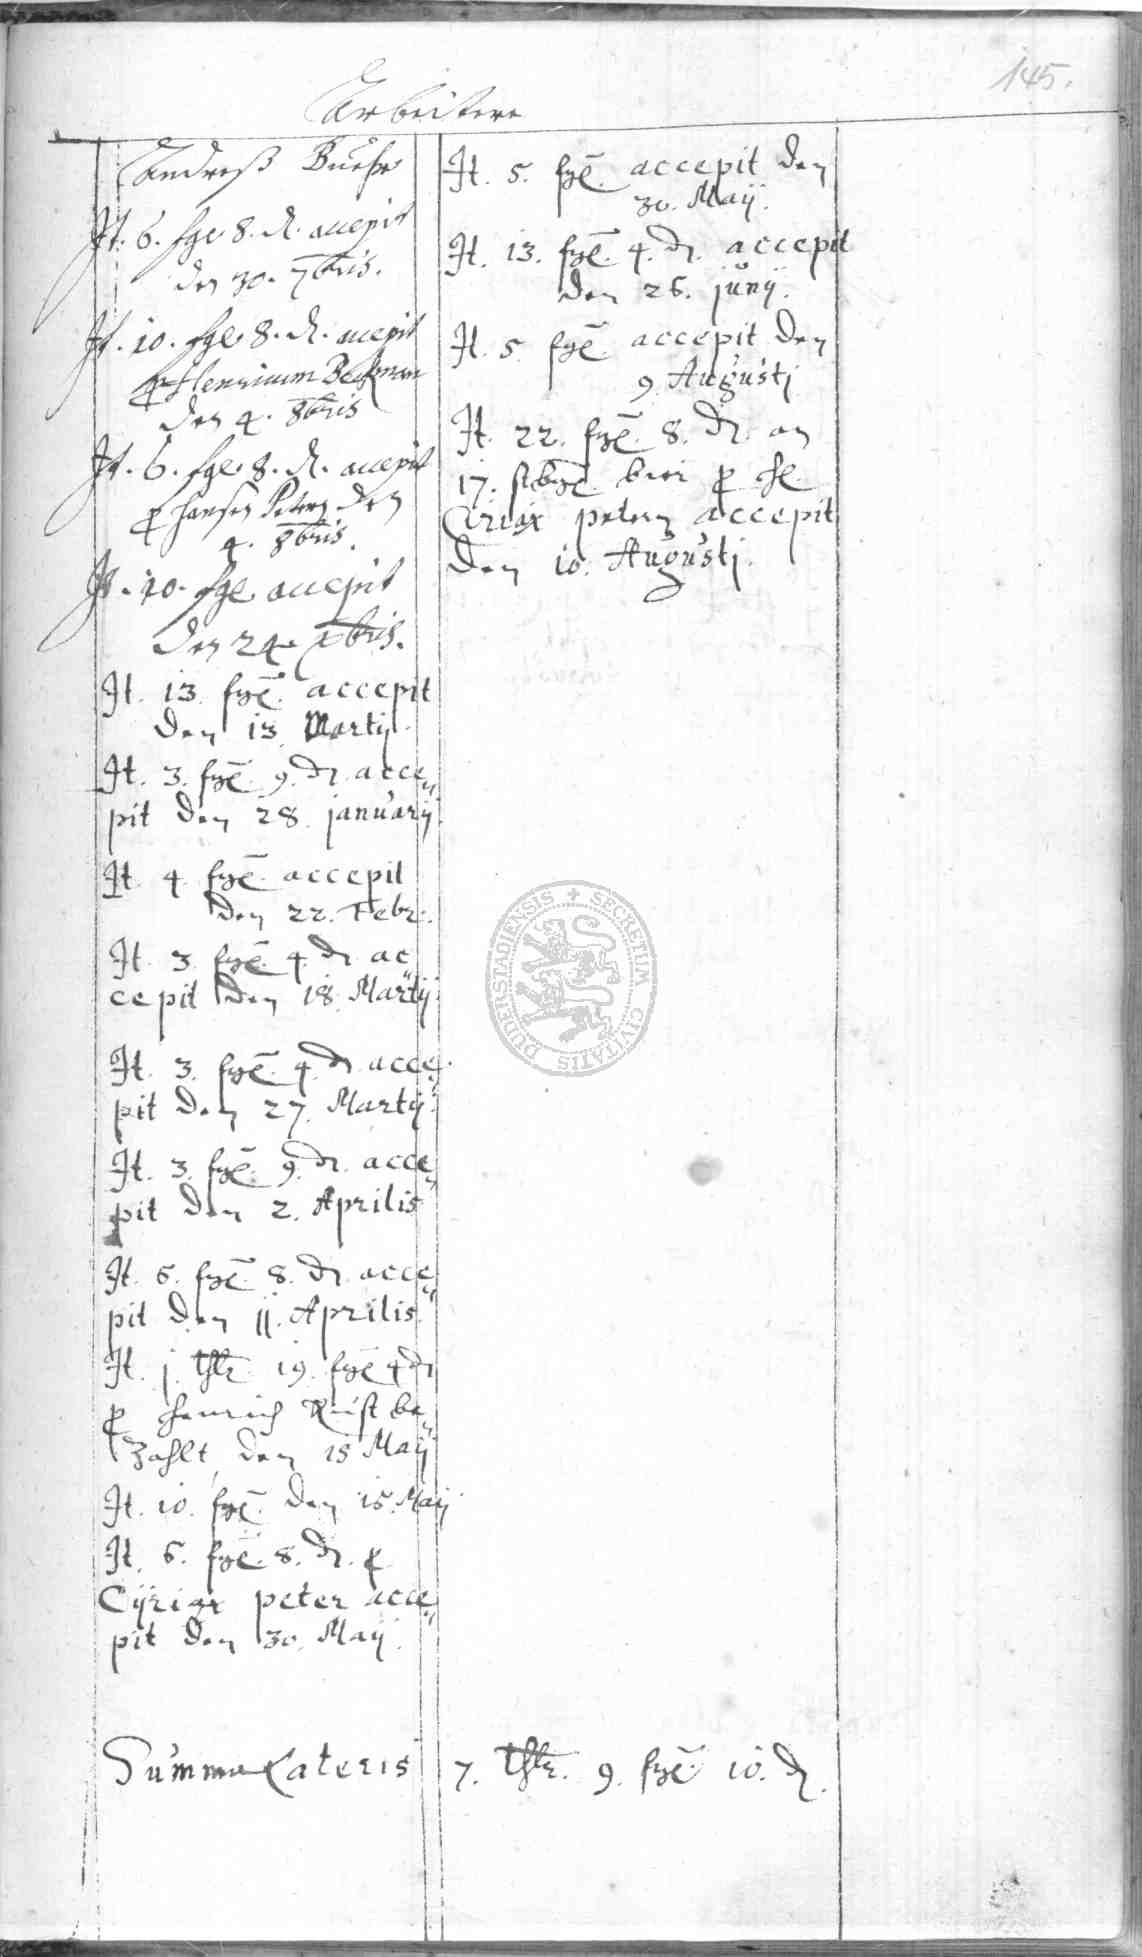 145.
Arbeitere
Andreß Buehr
It. 6. sgl 8. d. accepit
den 30. 7bris.
It. 10. sgl. 8. d. accepit
p Henricum Beckman
den 4. 8bris
It. 6. sgl. 8. d. accepit
p Hansen Petern den
4. 8bris.
It. 10. sgl accepit
den 24 xbris.
It. 13. sgl. accepit
den 13. Martij.
It. 3. sgl. 9. d. acce„
pit den 28. januarij
It. 4 sgl. accepit
den 22. Febr.
It. 3. sgl. 4. d. ac„
cepit den 18. Martij
It. 3. sgl. 4. d. acce„
pit den 27. Martij.
It. 3. sgl. 9. d. acce„
pit den 2. Aprilis
It. 6. sgl. 8. d. acce„
pit den 11. Aprilis.
It. j. thlr 19. sgl 4 d
p Henrich Rust be„
zahlt den 15 Maij
It. 10. sgl. den 15. Maij
It. 6. sgl. 8. d. p
Cijriax peter acce„
pit den 30. Maij.
It. 5. sgl. accepit den
30. Maij.
It. 13. sgl. 4. d. accepit
den 26. junij.
It. 5 sgl accepit den
9. Augustj
It. 22. sgl. 8. d. an
17. bier p
Ciriax petern accepit
den 10. Augustj.
Summa Lateris 7. thlr. 9. sgl 10. d.
SECRETUM CIVITATIS DUDERSTADIENSIS